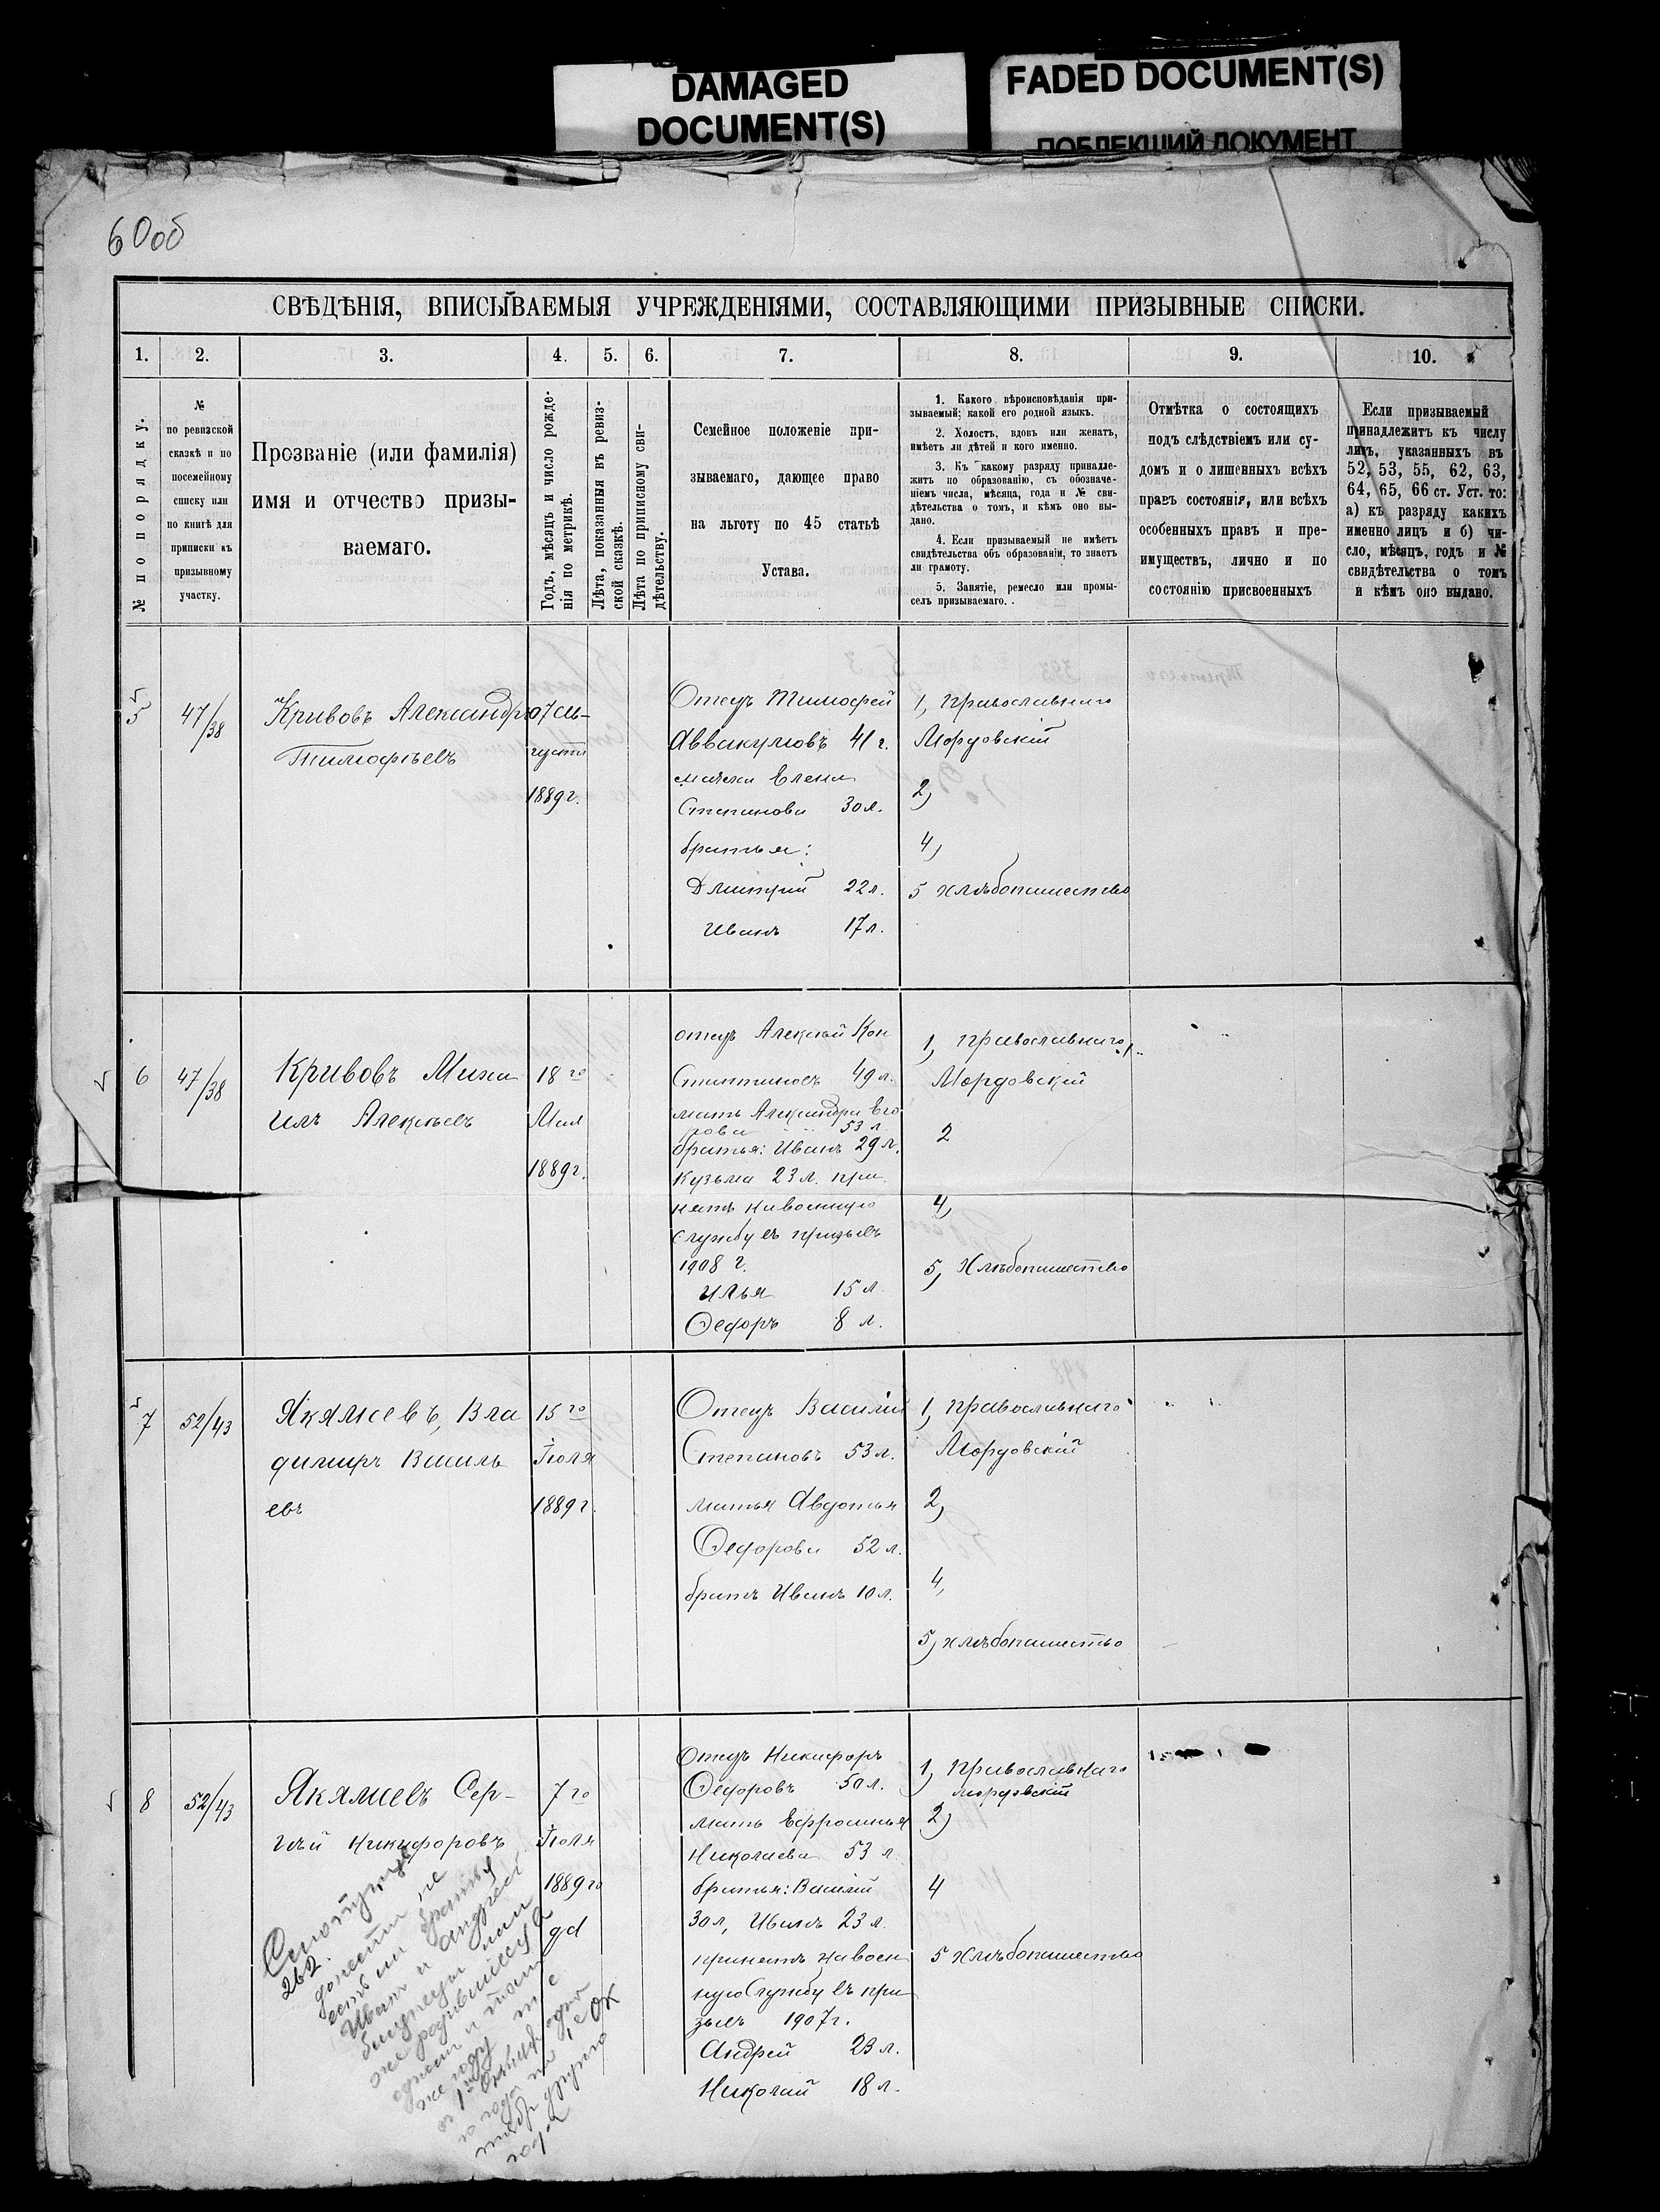 DAMAGED
DOCUMENT(S)
FADED DOCUMENT(S)
ПОБЛЕКШИЙ ДОКУМЕНТ
60об
СВѢДѢНІЯ, ВПИСЫВАЕМЫЯ УЧРЕЖДЕНІЯМИ, СОСТАВЛЯЮЩИМИ ПРИЗЫВНЫЕ СПИСКИ.
1. 2. 3. 4. 5. 6. 7. 8. 9. 10.
№ по порядку.
№
по ревизской
сказкѣ и по
посемейному
списку или
по книгѣ для
приписки къ
призывному
участку.
Прозваніе (или фамилія)
имя и отчество призы-
ваемаго.
Годъ, мѣсяцъ и число рожде-
нія по метрикѣ.
Лѣта, показанныя въ ревиз-
ской сказкѣ.
Лѣта по приписному сви-
дѣтельству.
Семейное положеніе при-
зываемаго, дающее право
на льготу по 45 статьѣ
Устава.
1. Какого вѣроисповѣданія при-
зываемый; какой его родной языкъ.
2. Холостъ, вдовъ или женатъ,
имѣетъ ли дѣтей и кого именно.
3. Къ какому разряду принадле-
житъ по образованію, съ обозначе-
ніемъ числа, мѣсяца, года и № сви-
дѣтельства о томъ, и кѣмъ оно вы-
дано.
4. Если призываемый не имѣетъ
свидѣтельства объ образованіи, то знаетъ
ли грамоту.
5. Занятіе, ремесло или промы-
селъ призываемаго.
Отмѣтка о состоящихъ
подъ слѣдствіемъ или су-
домъ и о лишенныхъ всѣхъ
правъ состоянія, или всѣхъ
особенныхъ правъ и пре-
имуществъ, лично и по
состоянію присвоенныхъ
Если призываемый
принадлежитъ къ числу
лицъ, указанныхъ въ
52, 53, 55, 62, 63,
64, 65, 66 ст. Уст. то:
а) къ разряду какихъ
именно лицъ и б) чи-
сло, мѣсяцъ, годъ и №
свидѣтельства о томъ
и кѣмъ оно выдано.
5
47/38
Кривовъ Александръ
Тимофѣевъ
густа
1889г.
Отецъ Тимофей
Аввакумовъ 41 г.
Елена
Степанова 30л.
братья:
Дмитрій 22л.
Иванъ 17л.
1, Православнаго
Мордовскій
2,
4,
5 хлѣбопашество
6
47/38
Кривовъ Миха
илъ Алексѣевъ
18го
Мая
1889г.
отецъ Алексѣй Кон
стантиновъ 49л.
мать Александра Его
рова 53л
братья: Иванъ 29л.
Кузьма 23л. при
нятъ на военную
службу въ призывъ
1908 г.
Илья 15 л.
Ѳедоръ 8 л.
1, Православнаго
Мордовскій
2
4,
5, Хлѣбопашество
7
52/43
Якямсевъ, Вла
димиръ Василь
евъ
15го
Іюля
1889г.
Отецъ Василій
Степановъ 53л.
матья Авдотья
Ѳедорова 52л.
братъ Иванъ 10л.
1, Православнаго
Мордовскій
2,
4,
5, хлѣбопашество
8
52/43
Якямсевъ Сер-
гѣй Никифоровъ
7го
Іюля
1889го
Отецъ Никифоръ
Ѳедоровъ 50л.
мать Ефросинья
Николаева 53 л.
братья: Василій
30л, Иванъ 23л.
принятъ на воен
ную службу въ при
зывъ 1907г.
Андрей 23л.
Николай 18л.
1, Православнаго
мордовскій
2)
4
5 Хлѣбопашество
262.
братья
Иванъ и Андрей
близнецы или
же родившіеся в
одномъ и томъ
же году